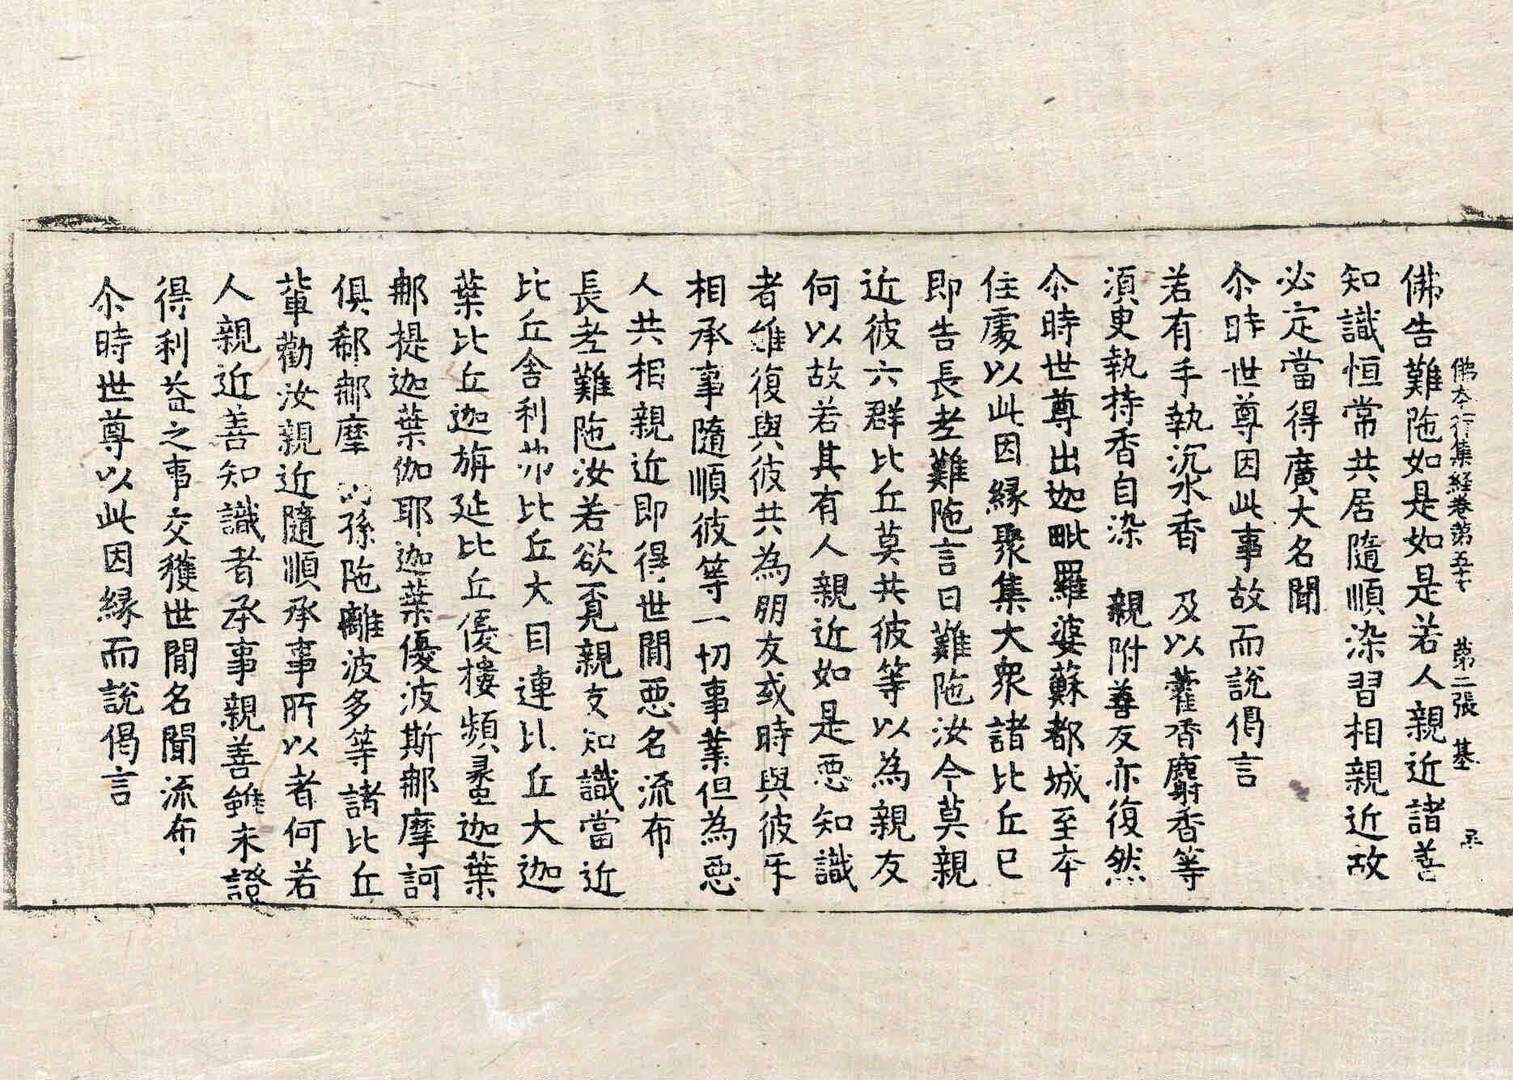 佛本行集経卷第五十七 第二張 基
佛告難陁如是如是若人親近諸善
知識恒常共居隨順染習相親近故
必定當得廣大名聞
尒時世尊因此事故而說偈言
若有手執沉水香 及以藿香麝香等
須臾執持香自染 親附善友亦復然
尒時世尊出迦毗羅婆蘇都城至本
住處以此因縁聚集大衆諸比丘已
即告長老難陁言曰難陁汝今莫親
近彼六群比丘莫共彼等以為親友
何以故若其有人親近如是惡知識
者雖復與彼共為朋友或時與彼
相承事隨順彼等一切事業但為惡
人共相親近即得世間惡名流布
長老難陁汝若欲覓親友知識當近
比丘舍利弗比丘大目連比丘大迦
葉比丘迦旃延比丘優樓頻螺迦葉
那提迦葉伽耶迦葉優波斯那摩訶
俱郗那摩 孫陁離波多等諸比丘
軰勸汝親近隨順承事所以者何若
人親近善知識者承事親善雖未證
得利益之事交獲世間名聞流布
尒時世尊以此因縁而說偈言